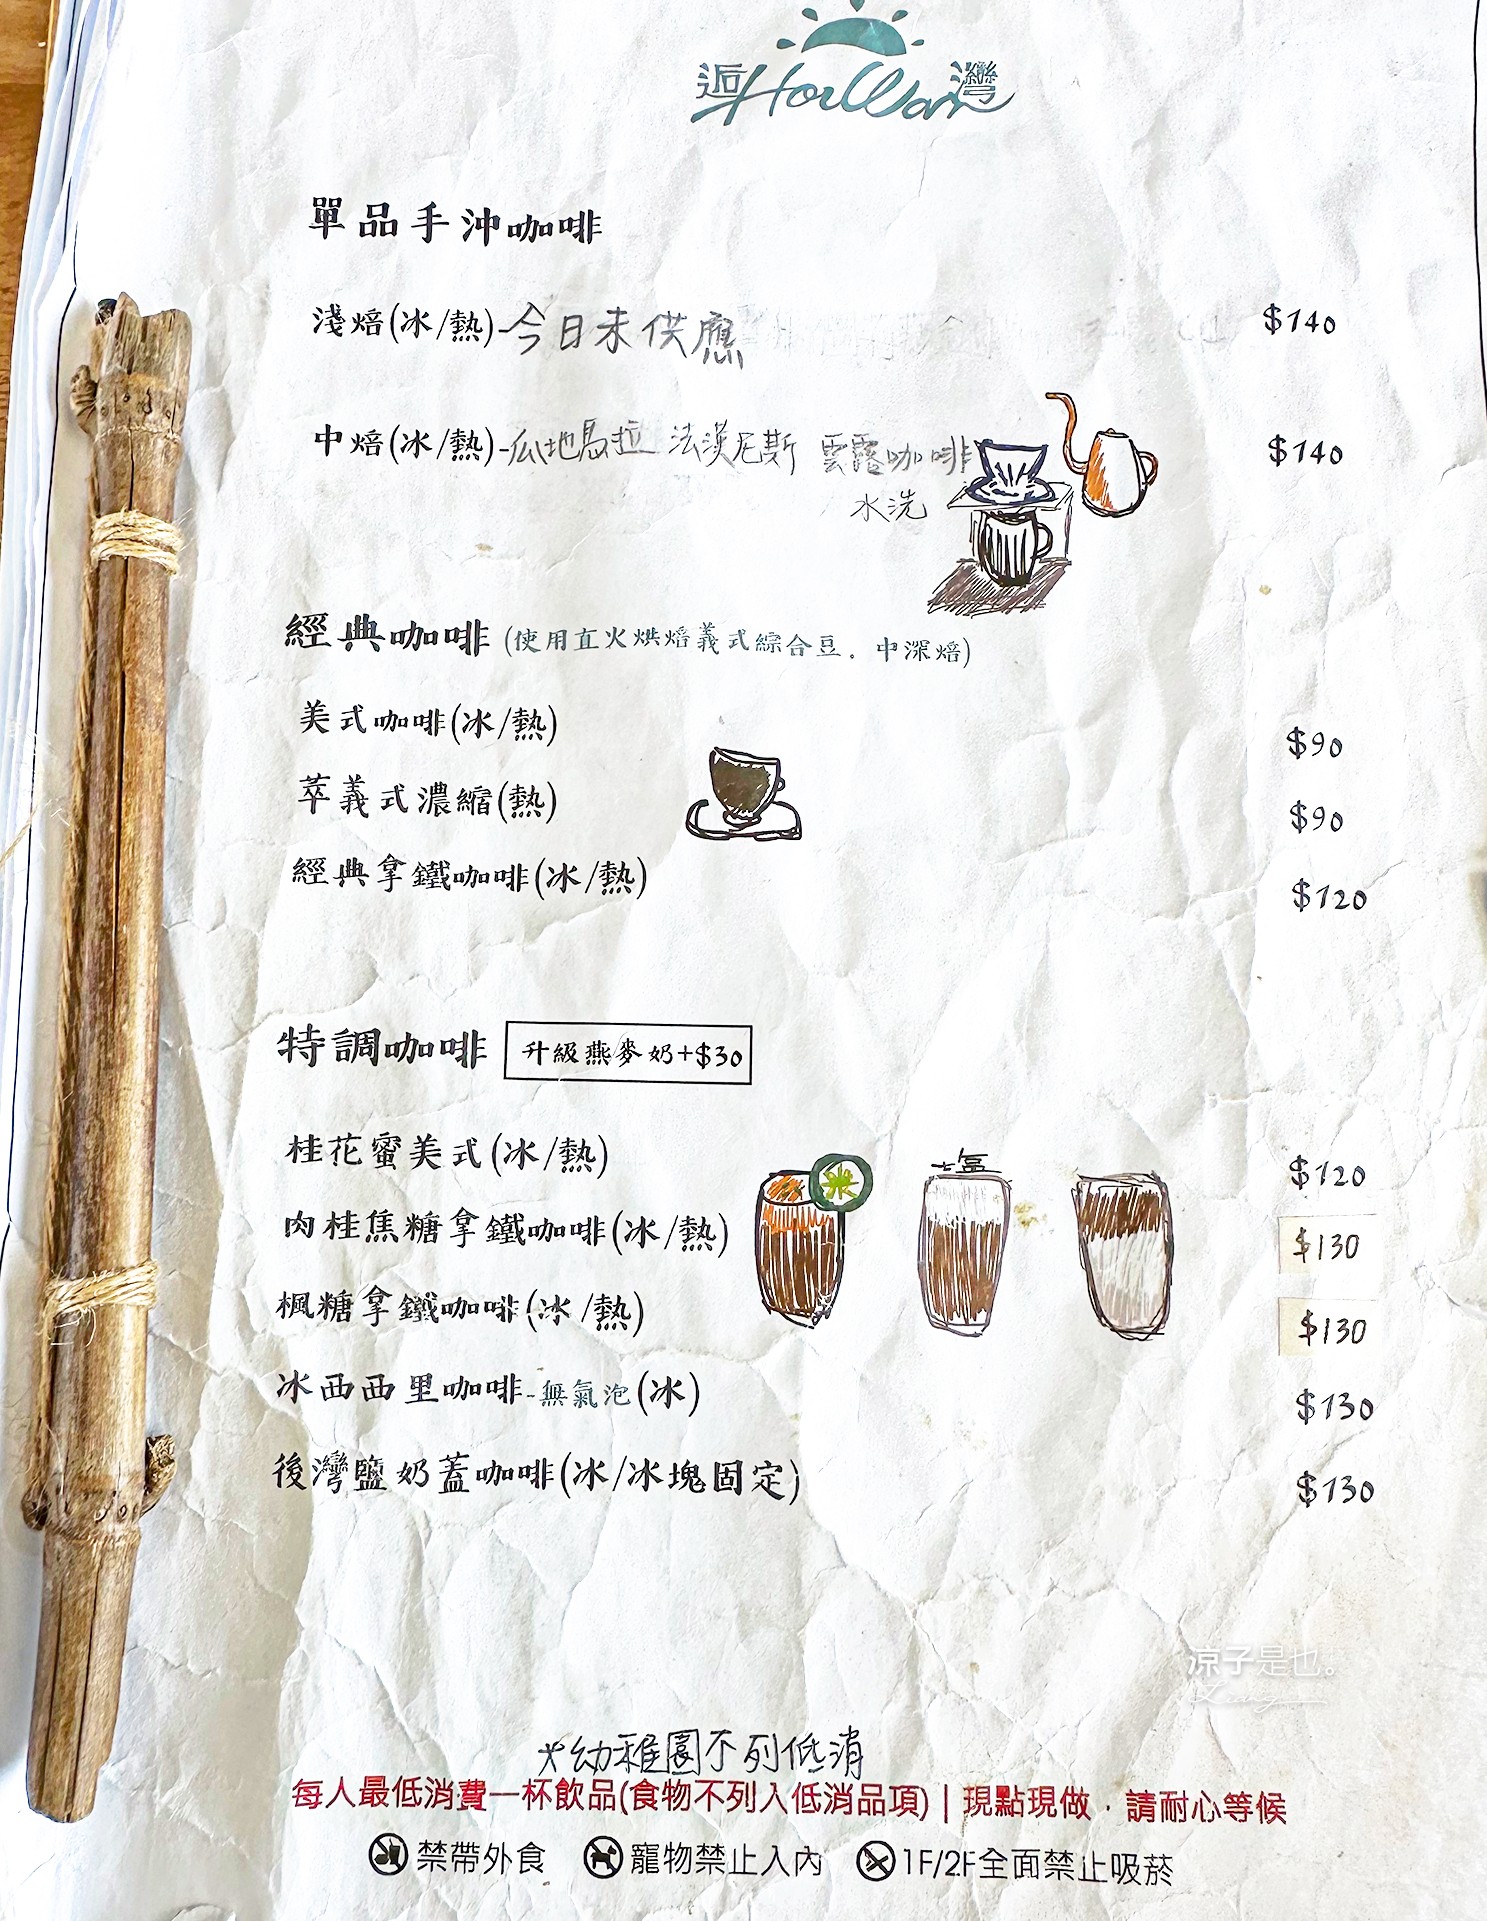 逅HouWan灣
單品手沖咖啡
淺焙(冰/熱)-今日未供應 $140
中焙(冰/熱)-瓜地馬拉 法漢尼斯 雲露咖啡 $140
水洗
經典咖啡(使用直火烘焙義式綜合豆。中深焙)
美式咖啡(冰/熱) $90
萃義式濃縮(熱) $90
經典拿鐵咖啡(冰/熱) $120
特調咖啡 升級燕麥奶+$30
桂花蜜美式(冰/熱) $120
肉桂焦糖拿鐵咖啡(冰/熱) $130
楓糖拿鐵咖啡(冰/熱) $130
冰西西里咖啡-無氣泡(冰) $130
後灣鹽奶蓋咖啡(冰/冰塊固定) $130
涼子是也。
*幼稚園不列低消
每人最低消費一杯飲品(食物不列入低消品項)|現點現做．請耐心等候
禁帶外食 寵物禁止入內 1F/2F全面禁止吸菸